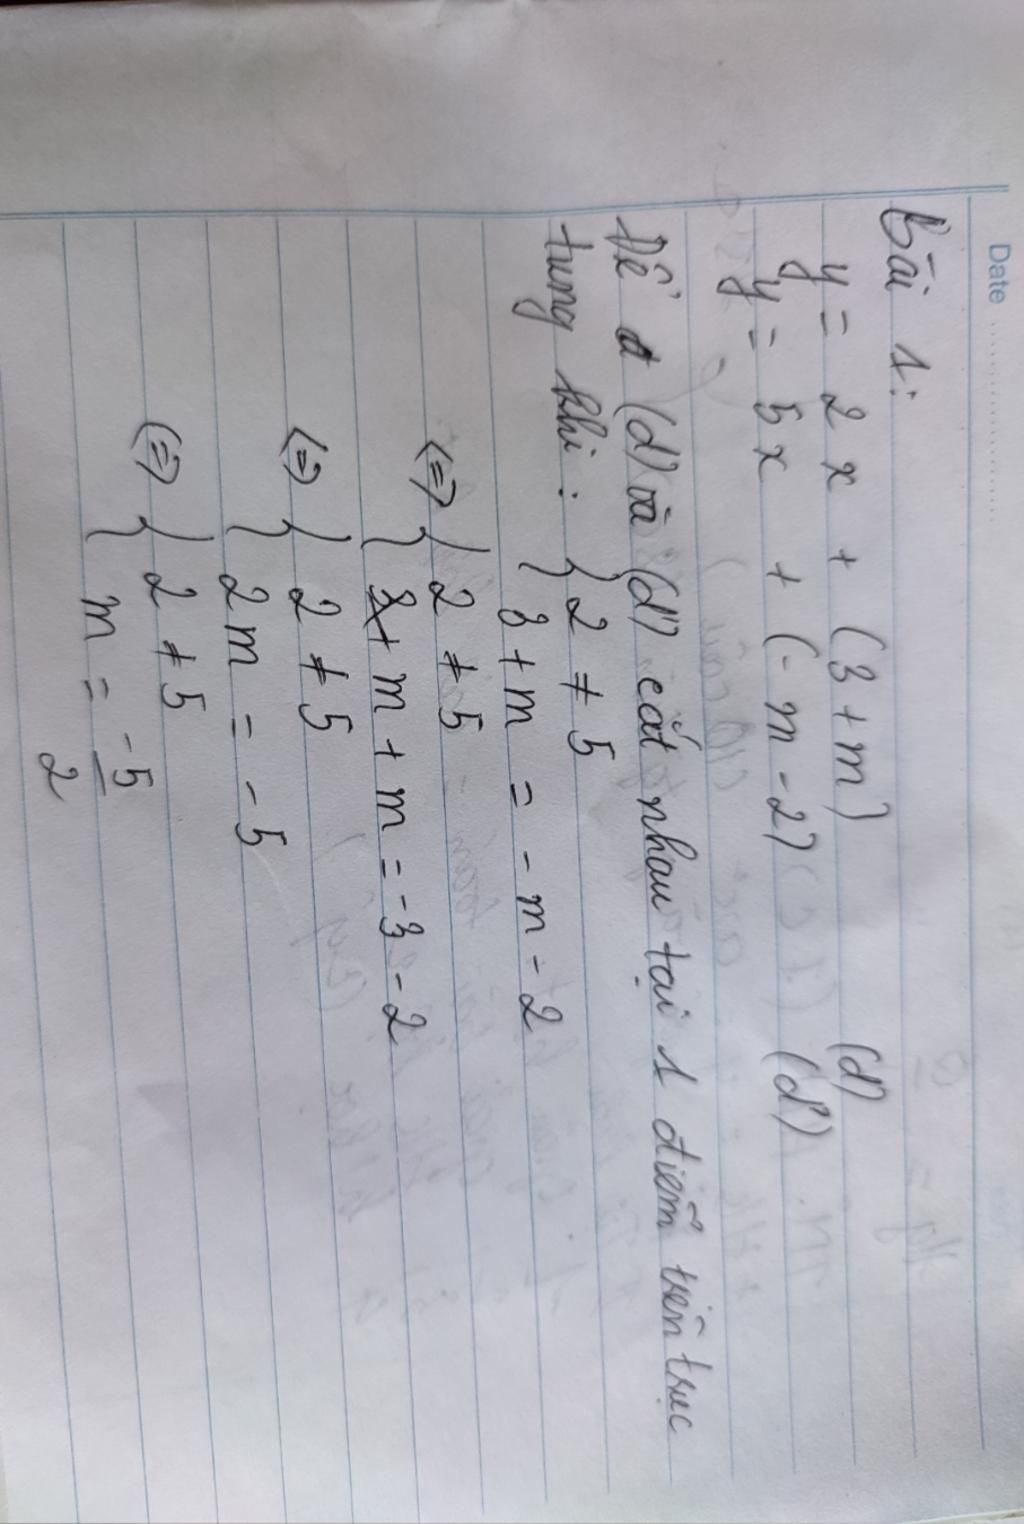 Date
Bài 1:
y = 2x + (3+m) (d)
y = 5x + (-m-2) (d')
Để (d) và (d') cắt nhau tại 1 điểm trên trục
tung khi: { 2 ≠ 5
3+m = -m-2
(=) { 2 ≠ 5
m+m = -3-2
(=) { 2 ≠ 5
2m = -5
(=) { 2 ≠ 5
m = -5/2